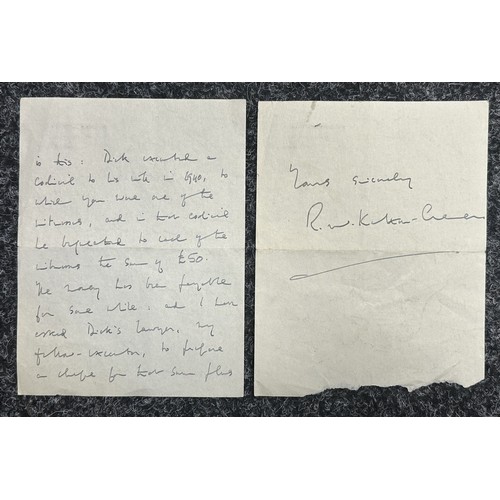 is this: Dick executed a
codicil to his will in 1940, to
which you were one of the
witnesses, and in that codicil
he bequeathed to each of the
witnesses the sum of £50.
The money has been payable
for some while, and I have
asked Dick's lawyer, my
fellow-executor, to prepare
a cheque for that sum plus
Yours sincerely
R. W. Ketton-Cremer